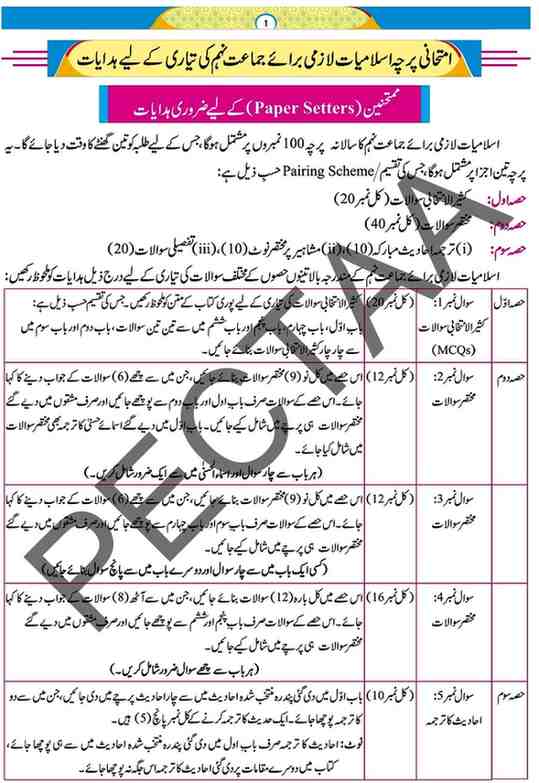 1
امتحانی پرچہ اسلامیات لازمی برائے جماعت نہم کی تیاری کے لیے ہدایات
ممتحنین (Paper Setters) کے لیے ضروری ہدایات
اسلامیات لازمی برائے جماعت نہم کا سالانہ پرچہ 100 نمبروں پر مشتمل ہوگا، جس کے لیے طلبہ کو تین گھنٹے کا وقت دیا جائے گا۔ یہ
پرچہ تین اجزا پر مشتمل ہوگا، جس کی تقسیم/Pairing Scheme حسب ذیل ہے:
حصہ اول: کثیر الانتخابی سوالات (کل نمبر 20)
حصہ دوم: مختصر سوالات (کل نمبر 40)
حصہ سوم: (i) ترجمہ احادیث مبارکہ (10)، (ii) مشاہیر پر مختصر نوٹ (10)، (iii) تفصیلی سوالات (20)
اسلامیات لازمی برائے جماعت نہم کے مندرجہ بالا تینوں حصوں کے مختلف سوالات کی تیاری کے لیے درج ذیل ہدایات کو ملحوظ رکھیں:
حصہ اوّل
سوال نمبر 1:
کثیر الانتخابی سوالات
(MCQs)
(کل نمبر 20)
کثیر الانتخابی سوالات کی تیاری کے لیے پوری کتاب کے متن کو ملحوظ رکھیں۔ جس کی تقسیم حسب ذیل ہے:
باب اوّل، باب چہارم، باب پنجم اور باب ششم میں سے تین تین سوالات، باب دوم اور باب سوم میں
سے چار چار کثیر الانتخابی سوالات بنائے جائیں۔
حصہ دوم
سوال نمبر 2:
مختصر سوالات
(کل نمبر 12)
اس حصے میں کل نو (9) مختصر سوالات بنائے جائیں، جن میں سے چھے (6) سوالات کے جواب دینے کا کہا
جائے۔ اس حصے کے سوالات صرف باب اول اور باب دوم سے پوچھے جائیں اور صرف مشقوں میں دیے گئے
مختصر سوالات ہی پرچے میں شامل کیے جائیں۔ باب اوّل میں دیے گئے اسمائے حسنٰی کا ترجمہ بھی مختصر سوالات
میں شامل کیا جائے۔
(ہر باب سے چار سوال اور اسماء الحسنٰی میں سے ایک ضرور شامل کریں۔)
سوال نمبر 3:
مختصر سوالات
(کل نمبر 12)
اس حصے میں کل نو (9) مختصر سوالات بنائے جائیں، جن میں سے چھے (6) سوالات کے جواب دینے کا کہا
جائے۔ اس حصے کے سوالات صرف باب سوم اور باب چہارم سے پوچھے جائیں اور صرف مشقوں میں دیے گئے
مختصر سوالات ہی پرچے میں شامل کیے جائیں۔
(کسی ایک باب میں سے چار سوال اور دوسرے باب میں سے پانچ سوال بنائے جائیں)
سوال نمبر 4:
مختصر سوالات
(کل نمبر 16)
اس حصے میں کل بارہ (12) سوالات بنائے جائیں، جن میں سے آٹھ (8) سوالات کے جواب دینے کا کہا
جائے۔ اس حصے کے سوالات صرف باب پنجم اور ششم سے پوچھے جائیں اور صرف مشقوں میں دیے گئے
مختصر سوالات ہی پرچے میں شامل کیے جائیں۔
(ہر باب سے چھے سوال ضرور شامل کریں۔)
حصہ سوم
سوال نمبر 5:
احادیث کا ترجمہ
(کل نمبر 10)
باب اوّل میں دی گئی پندرہ منتخب شدہ احادیث میں سے چار احادیث پرچے میں دی جائیں، جن میں سے دو
کا ترجمہ پوچھا جائے۔ ایک حدیث کا ترجمہ کرنے کے کل نمبر پانچ (5) ہیں۔
نوٹ: احادیث کا ترجمہ صرف باب اول میں دی گئی پندرہ منتخب شدہ احادیث میں سے ہی پوچھا جائے،
کتاب میں دوسرے مقامات پر دی گئی احادیث کا ترجمہ اس جگہ نہ پوچھا جائے۔
PECTAA